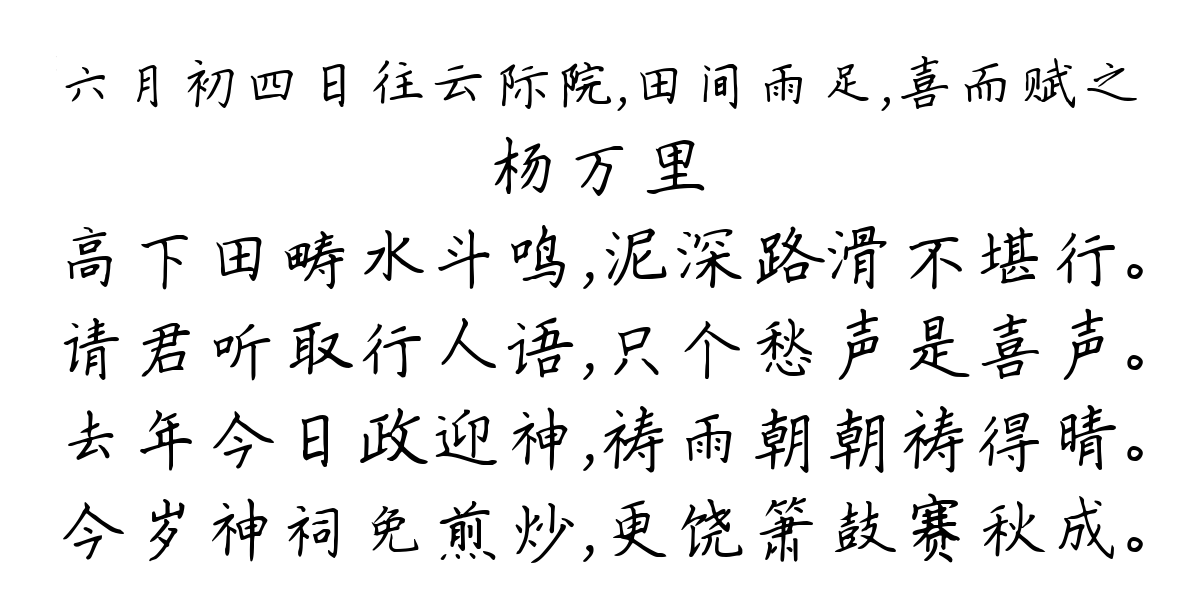 六月初四日往云际院,田间雨足,喜而赋之
杨万里
高下田畴水斗鸣,泥深路滑不堪行。
请君听取行人语,只个愁声是喜声。
去年今日政迎神,祷雨朝朝祷得晴。
今岁神祠免煎炒,更饶箫鼓赛秋成。